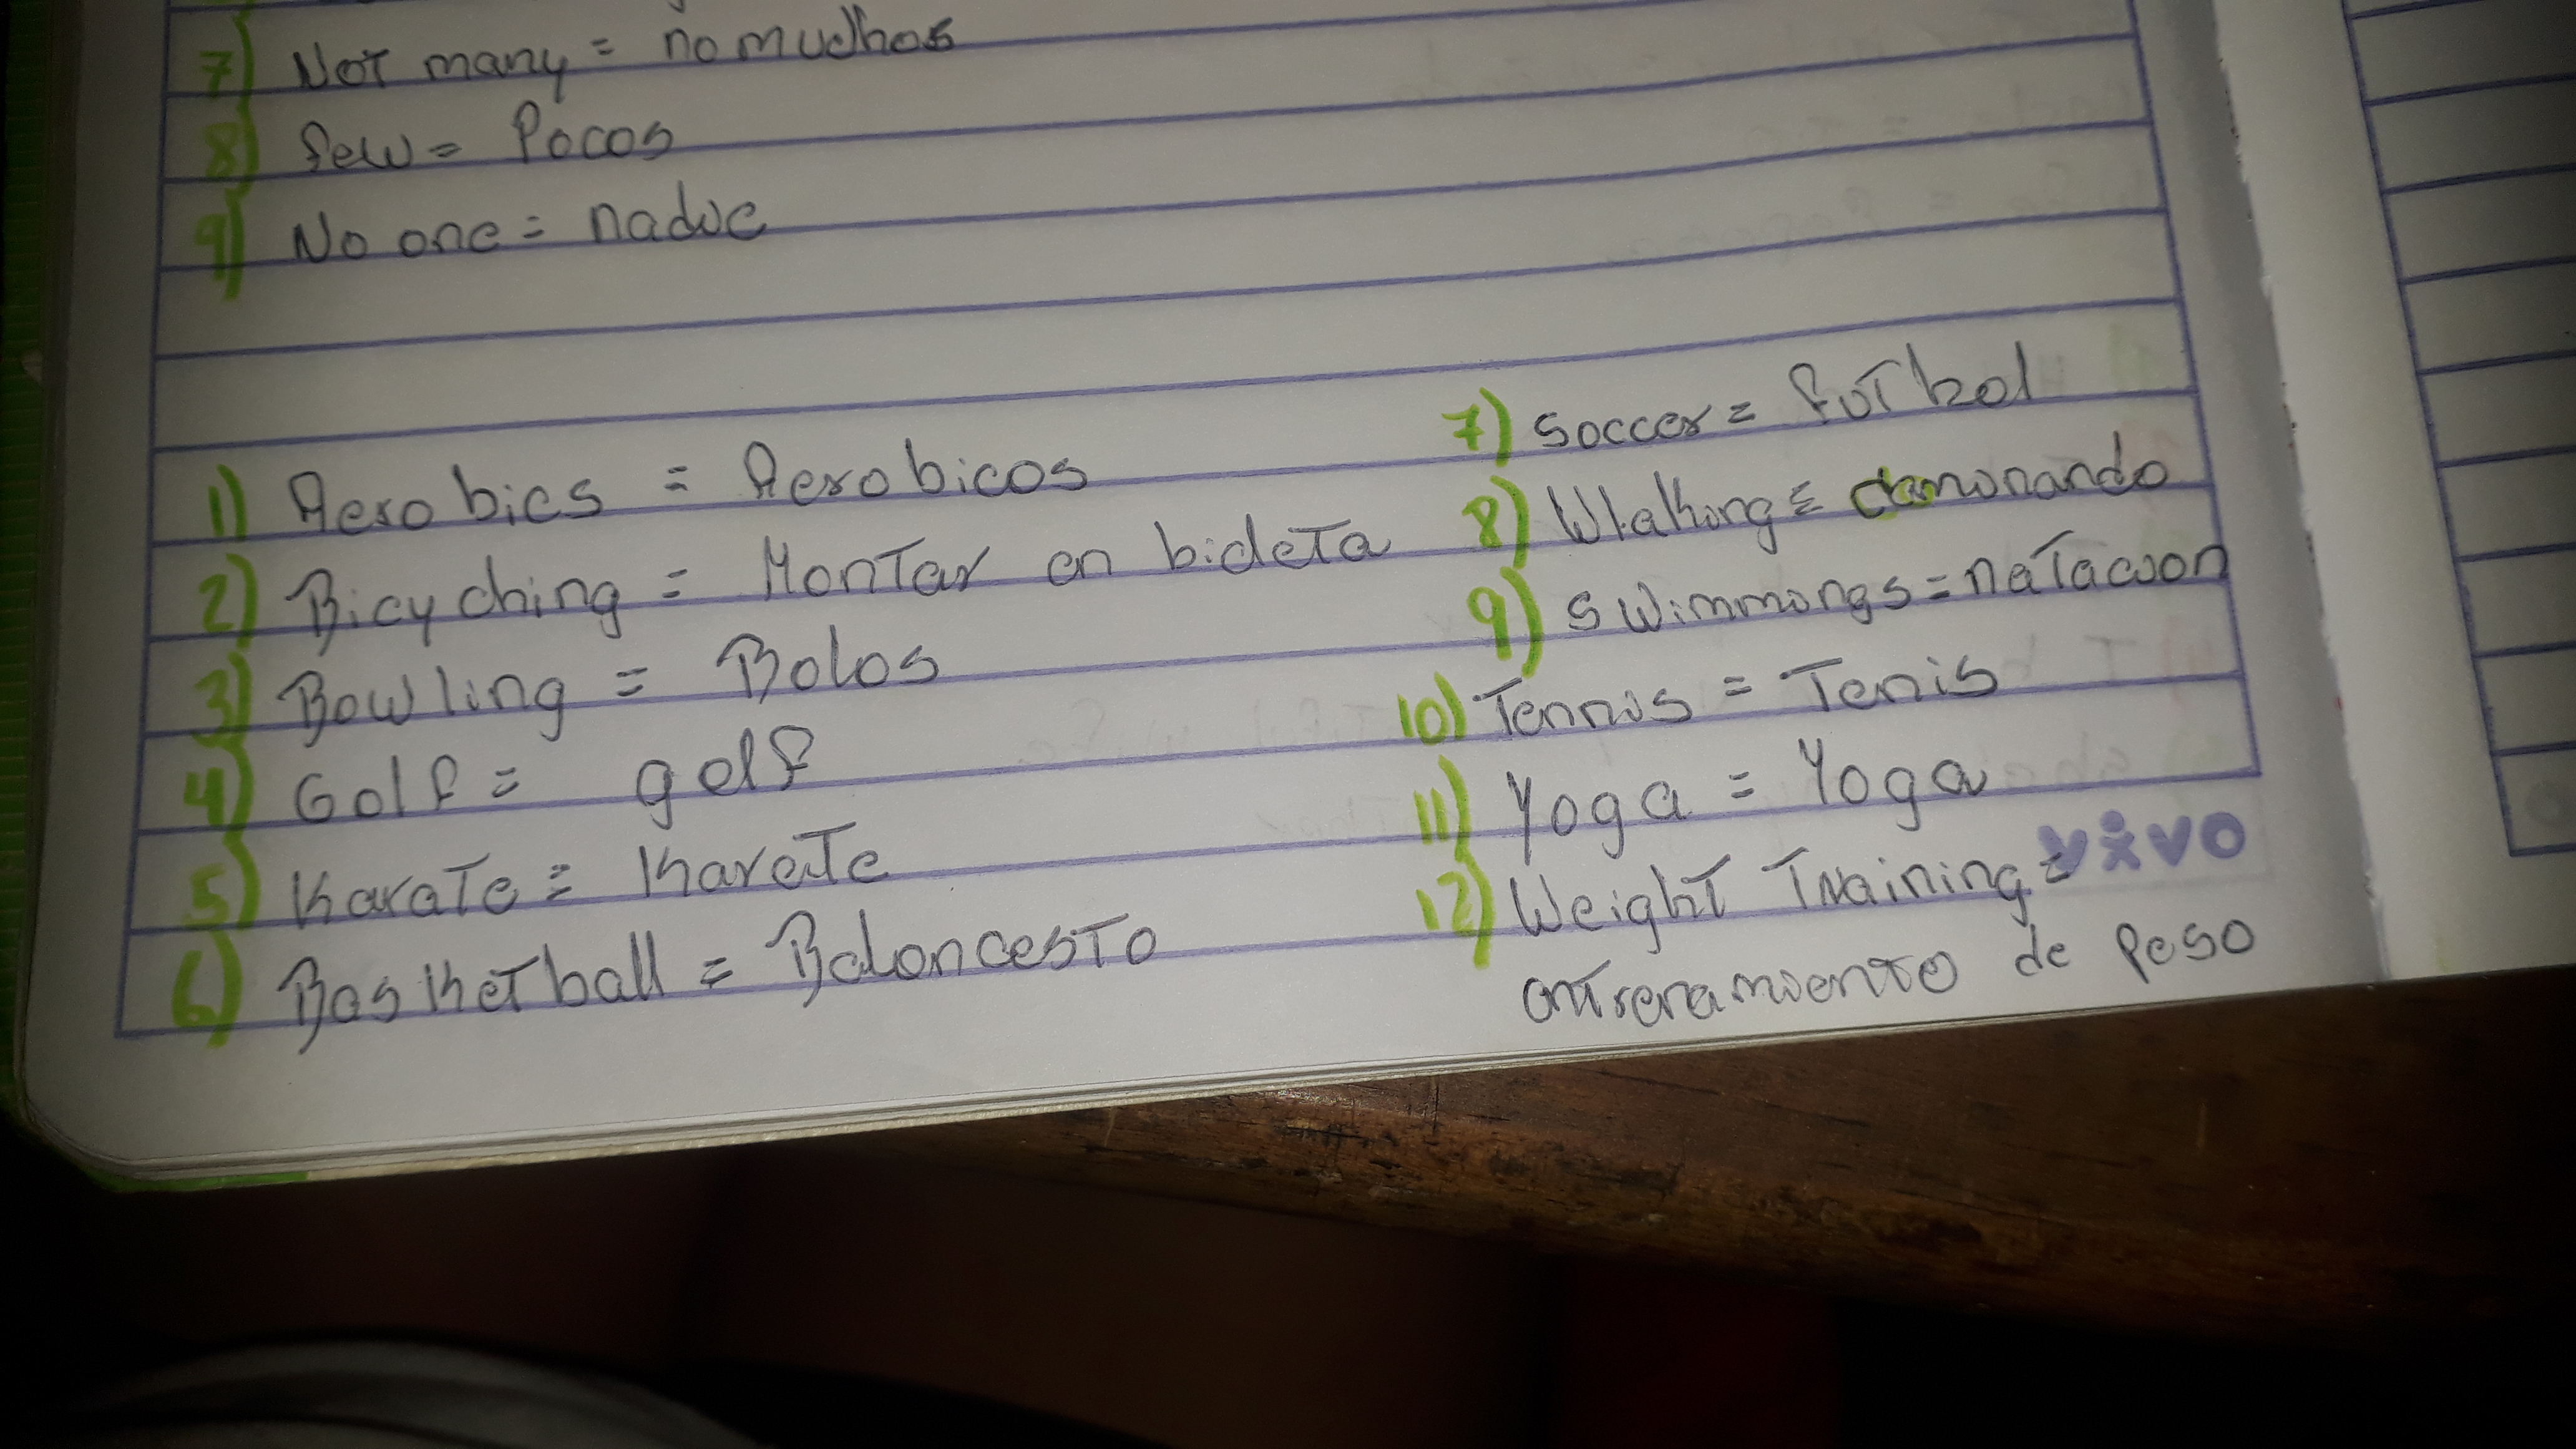 7) Not many = no muchos
8) few = Pocos
9) No one = nadie
1) Aerobics = Aerobicos
2) Bicycling = Montar en bicleta
3) Bowling = Bolos
4) Golf = golf
5) Karate = Karate
6) Basketball = Baloncesto
7) Soccer = futbol
8) Wlaking = caminando
9) swimmings = natacion
10) Tennis = Tenis
11) Yoga = Yoga
12) Weight Training =
entrenamiento de peso
vivo